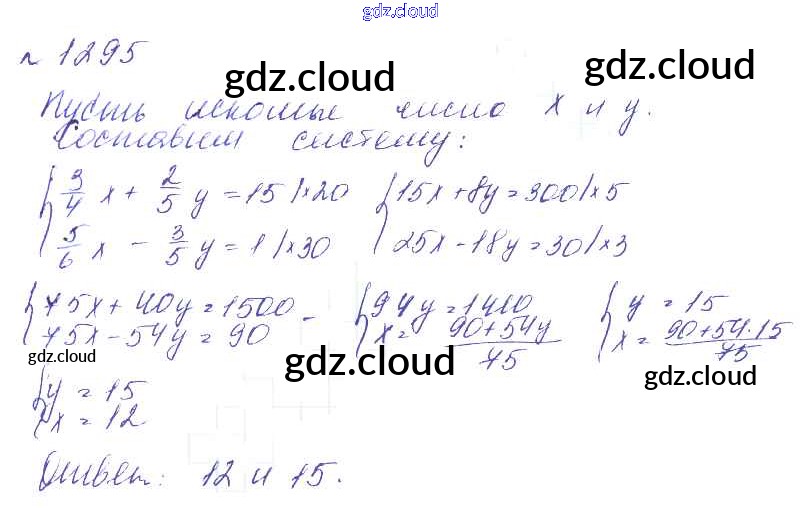 gdz.cloud
№ 1295
gdz.cloud gdz.cloud
Пусть искомые числа x и y.
Составим систему:
{ 3/4 x + 2/5 y = 15 | ×20 { 15x + 8y = 300 | ×5
5/6 x - 3/5 y = 1 | ×30 25x - 18y = 30 | ×3
{ 75x + 40y = 1500 - { 94y = 1410 { y = 15
75x - 54y = 90 x = (90+54y)/75 x = (90+54·15)/75
gdz.cloud gdz.cloud gdz.cloud
{ y = 15
x = 12
Ответ: 12 и 15.